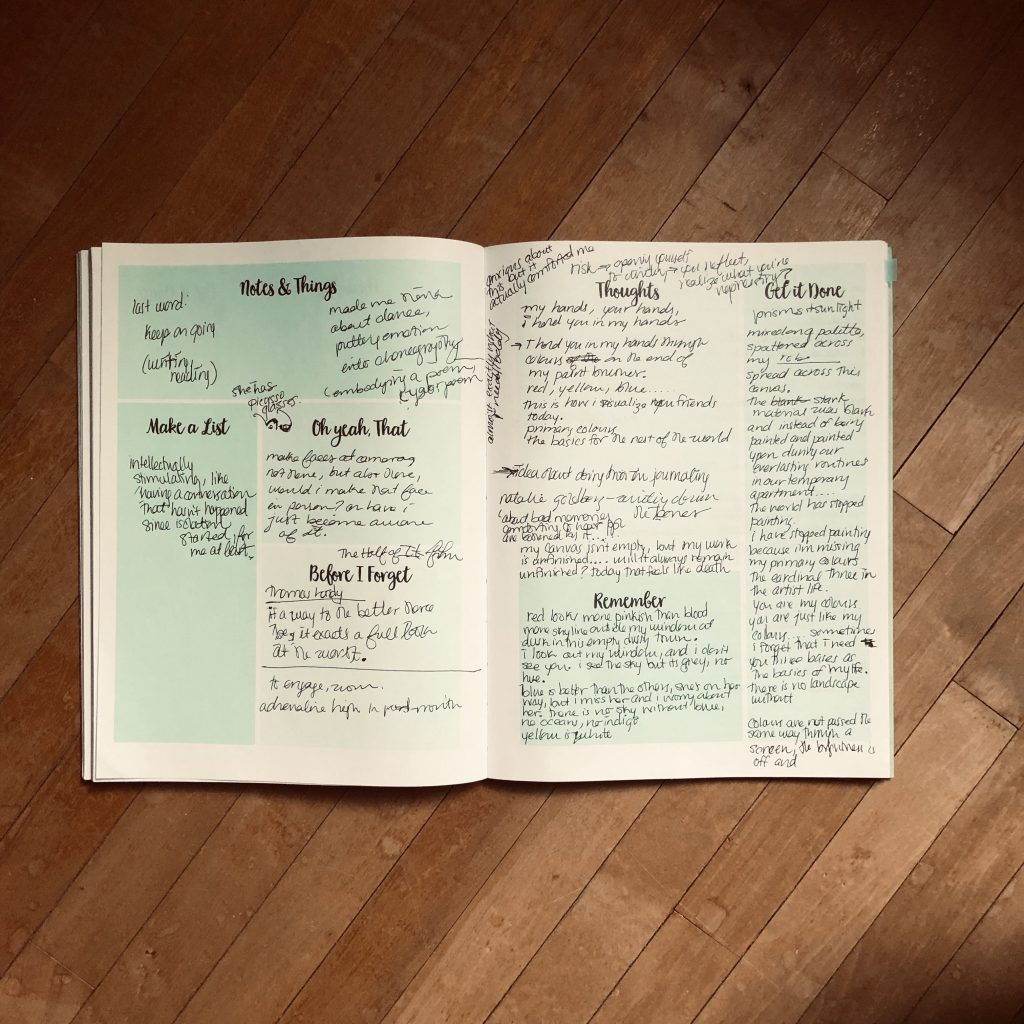 Notes & Things
last word:
keep on going
(writing
reading)
made me think
about dance,
putting emotion
into choreography
embodying a poem,
she has
picasso
glasses.
Make a List
intellectually
stimulating, like
having a conversation
that hasn't happened
since isolation
started, for
me at least.
Oh yeah, That
make faces at camera
not there, but also there,
would i make that face
in person? or have i
just become aware
of it.
The Half of It film
Before I Forget
Thomas Hardy
if a way to the better there
be, it exacts a full look
at the worst.
to engage, zoom.
adrenaline high in month
anxious about
this but it
actually comforted me
almost exactly what
i needed today
risk → opening yourself
to → you reflect,
realize what you're
Thoughts
my hands, your hands,
i hold you in my hands
→ I hold you in my hands through
colours on the end of
my paint brushes.
red, yellow, blue.....
this is how i visualize you friends
today.
primary colours
the basics for the rest of the world
idea about doing from the journaling
natalie goldberg -
about bad memories
comforting to hear ppl
are by it...
my canvas isn't empty, but my work
is diminished.... will it always remain
unfinished? today that feels like death
Remember
red looks more pinkish than blood
more skyline outside my window at
dusk in this empty dusty town.
i look out my window, and i don't
see you. i see the sky but its grey, no
hue.
blue is better than the others, she's on her
way, but i miss her and i worry about
her. there is no sky without blue,
no ocean, no indigo
yellow is white
Get it Done
prisms + sunlight
mixed on palette,
spattered across
my
spread across this
canvas.
the blank stark
material was blank
and instead of being
painted and painted
upon during our
everlasting routines
in our temporary
apartment....
The world has stopped
painting.
i have stopped painting
because i'm missing
my primary colours
the cardinal three in
the artist life.
you are my colours
you are just like my
colours.... sometimes
i forget that i need
you three bases as
the basics of my life.
there is no landscape
without
colours are not passed the
same way through a
screen, the brightness is
off and